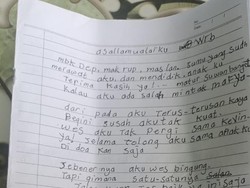 asSallamuallai'ku Wrb
mbk Dep, mak rup, mas Ian, sama yang sudah
merawat aku, dan mendidik anak ku
Terima kasih ya!... matur suwun banget
kalau aku ada salah mintak maaf ya
dari pada aku Terus-terusan kaya
Begini susah akutak kuat.
wes aku Tak Pergi sama Kevin.
ya! selama Tolong aku sama anak ku
Di doa kan Saja
Sebenernya aku wes bingung.
Tapi gimana Satu-satunya Jalan